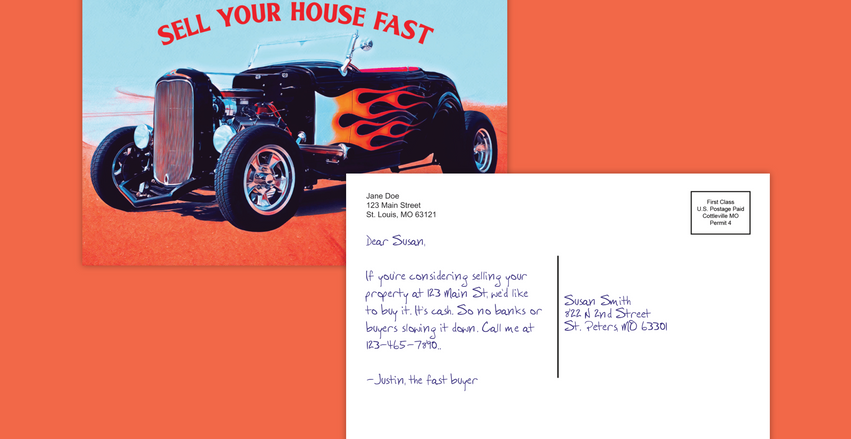 SELL YOUR HOUSE FAST
Jane Doe
123 Main Street
St. Louis, MO 63121
First Class
U.S. Postage Paid
Cottleville MO
Permit 4
Dear Susan,
If you're considering selling your
property at 123 Main St, we'd like
to buy it. It's cash. So no banks or
buyers slowing it down. Call me at
123-465-7890..
-Justin, the fast buyer
Susan Smith
822 N 2nd Street
St. Peters, MO 63301